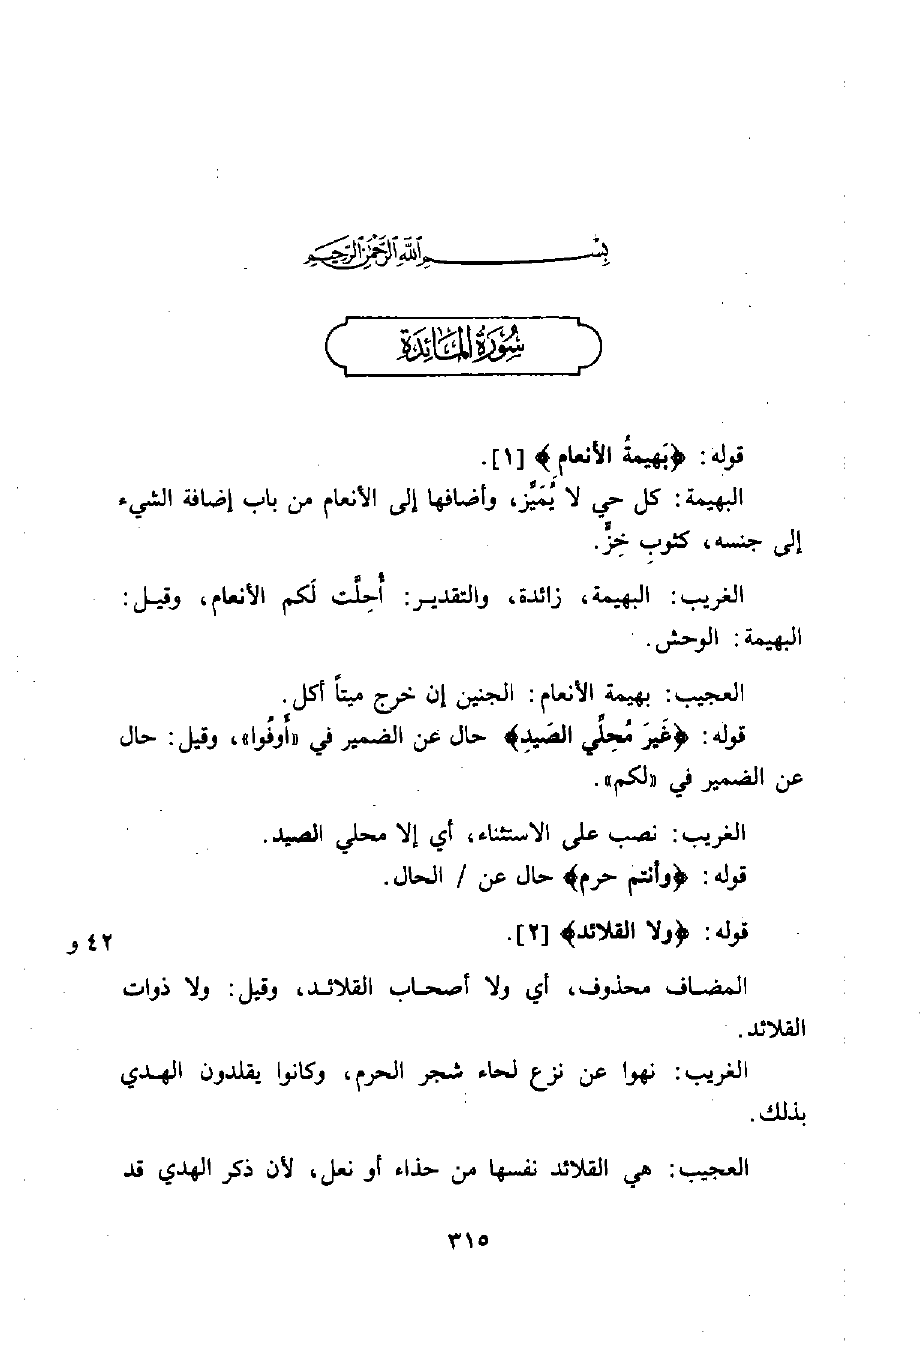 بِسْمِ اللَّهِ الرَّحْمَٰنِ الرَّحِيمِ
سُورَةُ المَائِدَة
قوله: ﴿بَهيمةُ الأنعام﴾ [١].
البهيمة: كل حي لا يُمَيِّز، وأضافها إلى الأنعام من باب إضافة الشيء
إلى جنسه، كثوبِ خزٍّ.
الغريب: البهيمة، زائدة، والتقدير: أُحِلَّت لَكم الأنعام، وقيل:
البهيمة: الوحش.
العجيب: بهيمة الأنعام: الجنين إن خرج ميتاً أكل.
قوله: ﴿غَيرَ مُحِلِّي الصَيدِ﴾ حال عن الضمير في «أَوفُوا»، وقيل: حال
عن الضمير في «لكم».
الغريب: نصب على الاستثناء، أي إلا محلي الصيد.
قوله: ﴿وأنتم حرم﴾ حال عن / الحال.
قوله: ﴿ولا القلائد﴾ [٢].
٤٢ و
المضاف محذوف، أي ولا أصحاب القلائد، وقيل: ولا ذوات
القلائد.
الغريب: نهوا عن نزع لحاء شجر الحرم، وكانوا يقلدون الهدي
بذلك.
العجيب: هي القلائد نفسها من حذاء أو نعل، لأن ذكر الهدي قد
٣١٥